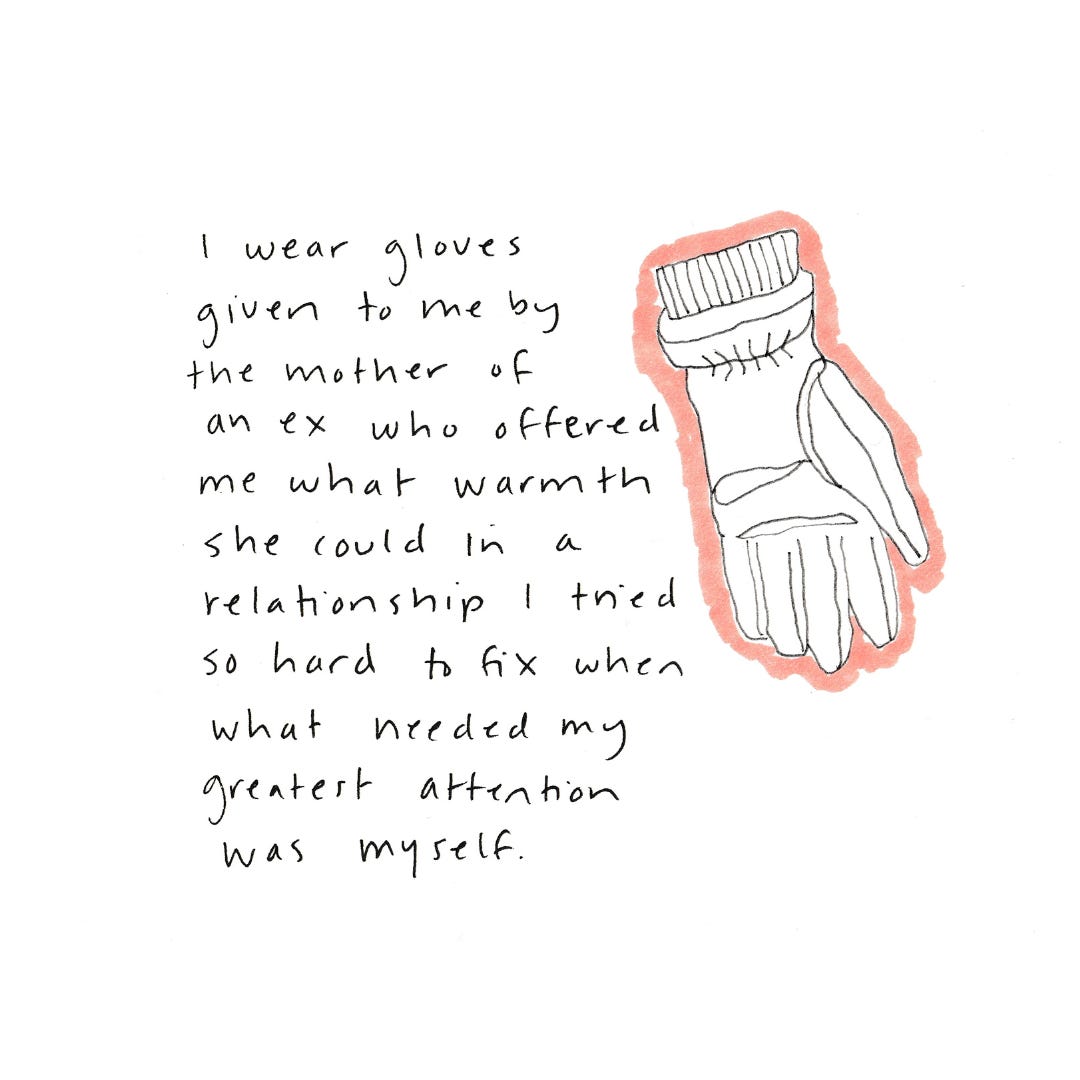 I wear gloves
given to me by
the mother of
an ex who offered
me what warmth
she could in a
relationship I tried
so hard to fix when
what needed my
greatest attention
was myself.